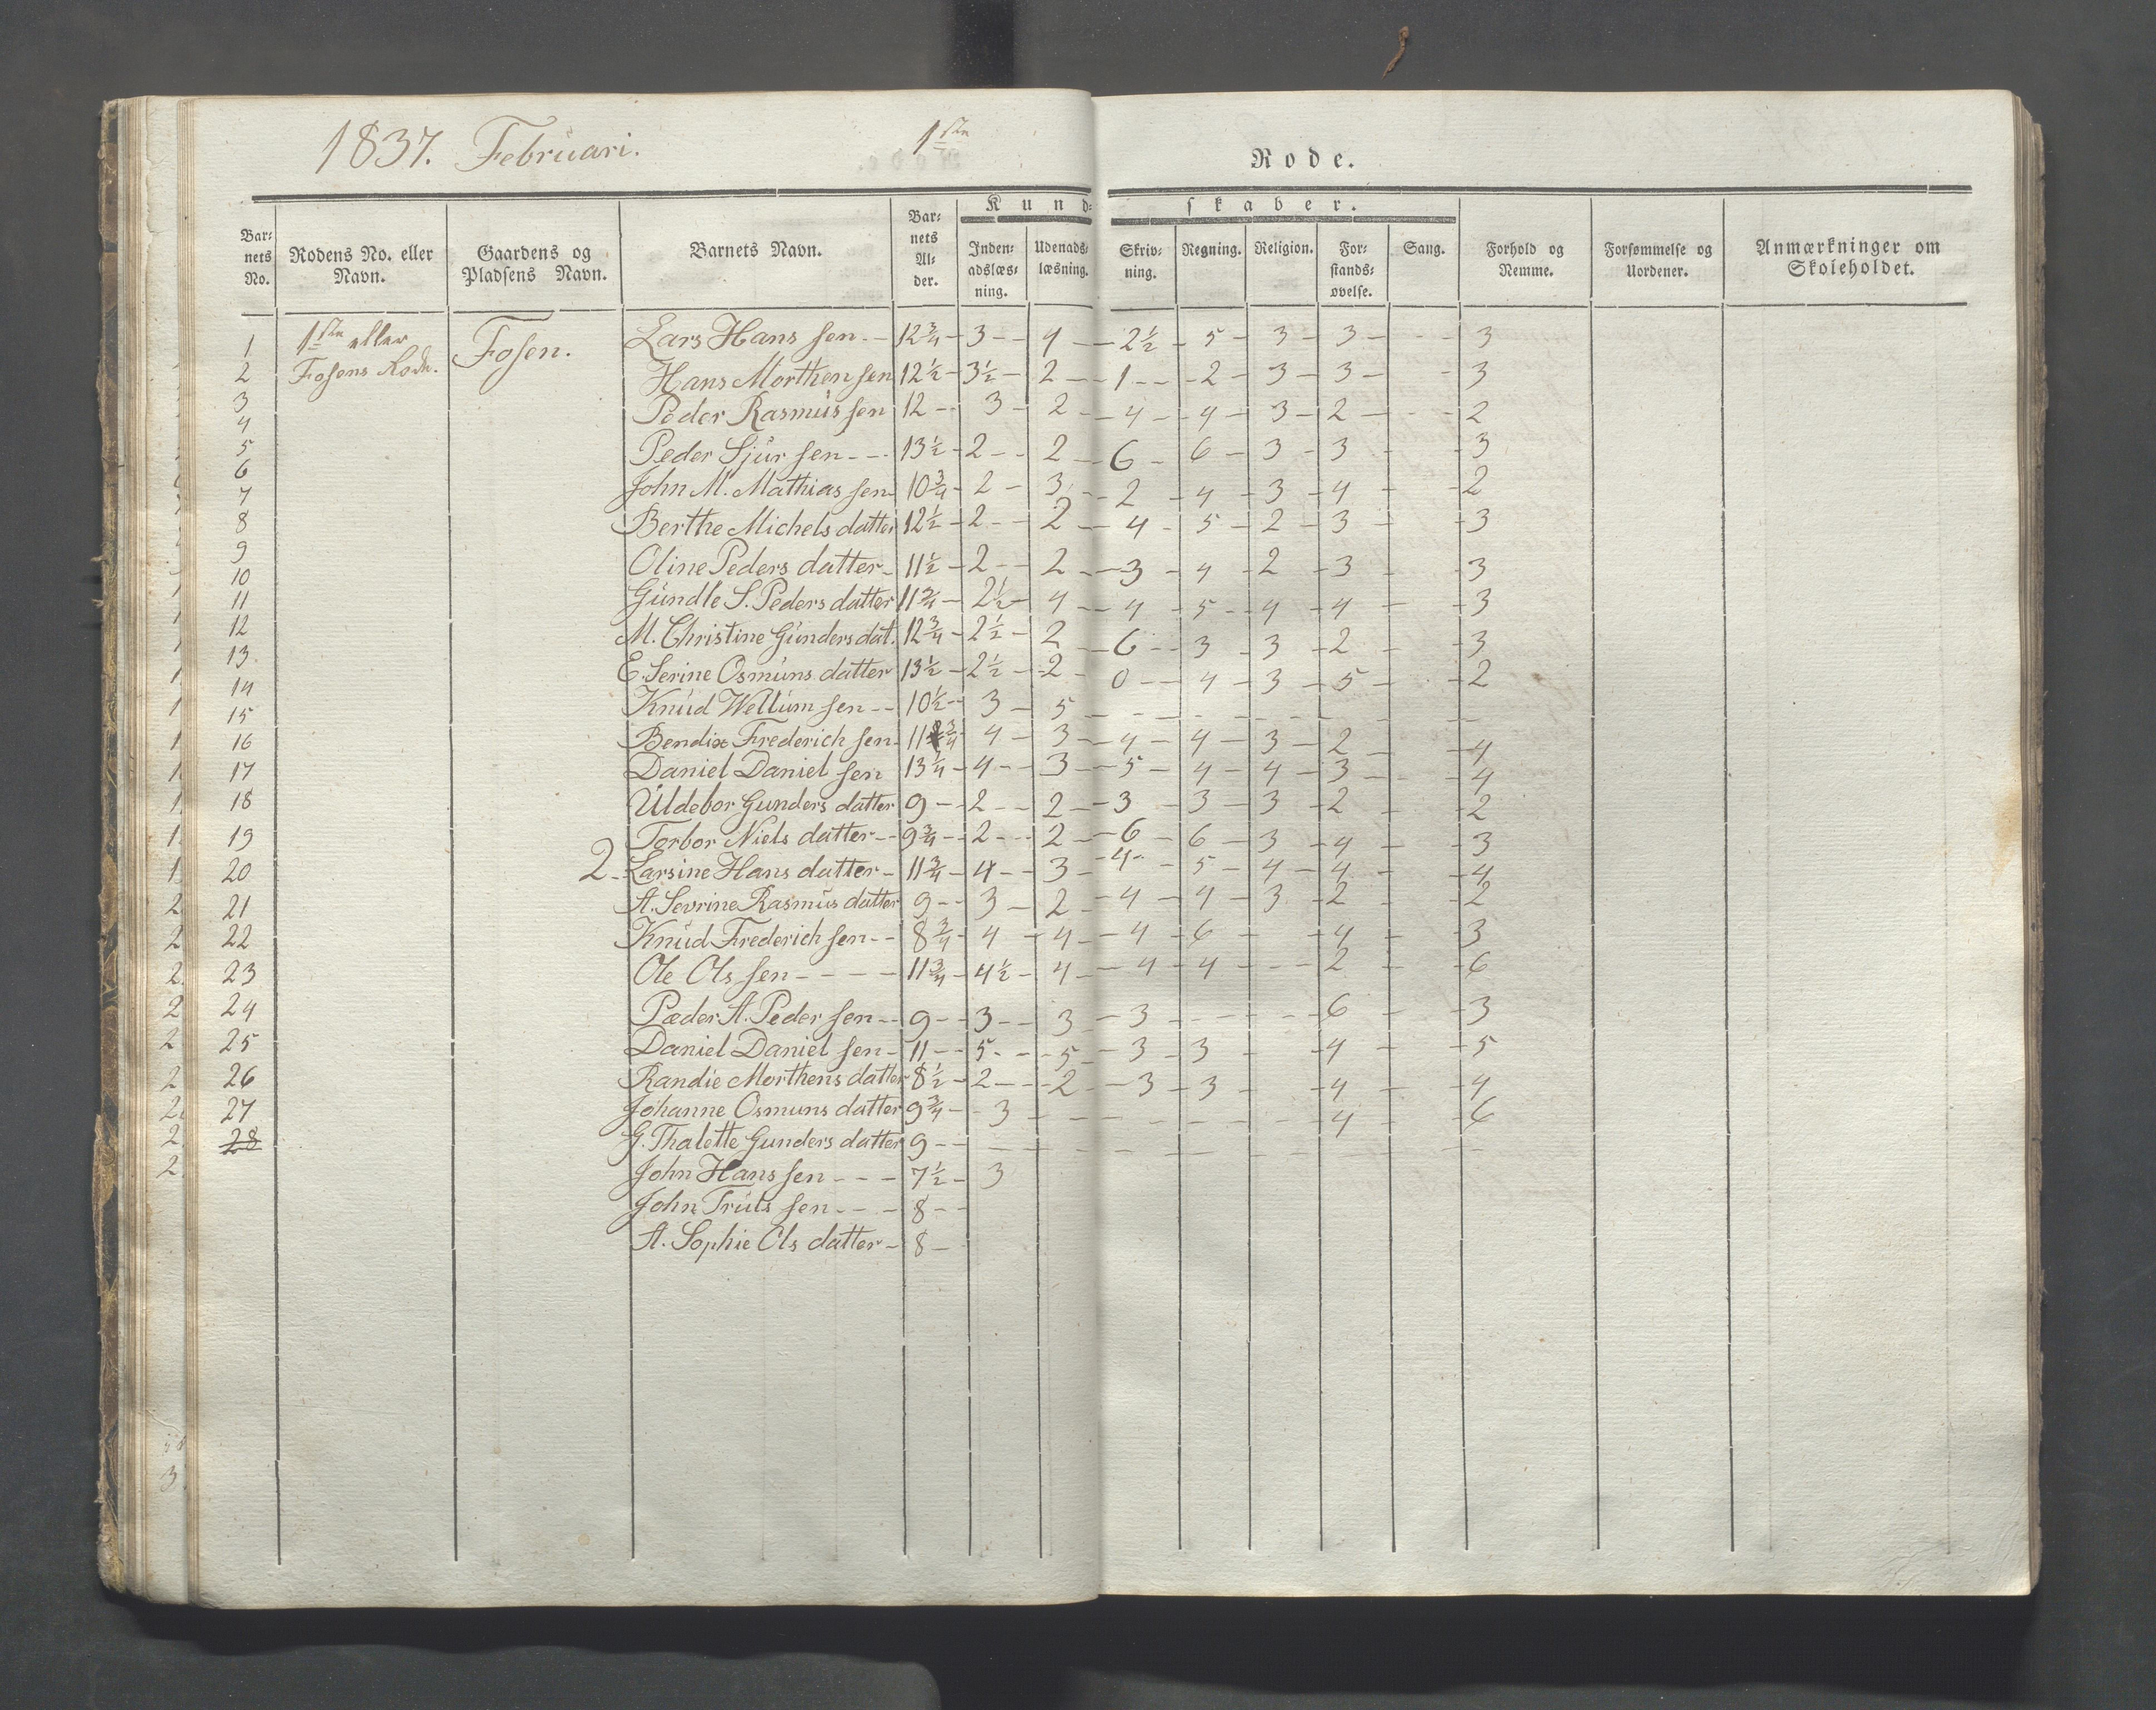 1837. Februari. 1ste Rode.
Kundskaber.
Barnets No. | Rodens No. eller Navn. | Gaardens og Pladsens Navn. | Barnets Navn. | Barnets Alder. | Indenadslæsning. | Udenadslæsning. | Skrivning. | Regning. | Religion. | Forstandsøvelse. | Sang. | Forhold og Nemme. | Forsømmelse og Uordener. | Anmærkninger om Skoleholdet.
1 1ste eller Fosen. Lars Hans sen - 12 3/4 - 3 - 4 - 2 1/2 - 5 - 3 - 3 - - 3
2 Fosens Rode. Hans Morthen sen 12 1/2 - 3 1/2 - 2 - 1 - 2 - 3 - 3 - - 3
3 Peder Rasmus sen 12 - 3 - 2 - 4 - 4 - 3 - 2 - - 2
4 Peder Sjur sen - - 13 1/2 - 2 - 2 - 6 - 6 - 3 - 3 - 3
5 John M. Mathias sen 10 3/4 - 2 - 3 - 2 - 4 - 3 - 4 - 2
6 Berthe Michels datter 12 1/2 - 2 - 2 - 4 - 5 - 2 - 3 - 3
7 Oline Peders datter - 11 1/2 - 2 - 2 - 3 - 4 - 2 - 3 - 3
8 Gundle S. Peders datter 11 3/4 - 2 1/2 - 4 - 4 - 5 - 4 - 4 - 3
9 M. Christine Gunders dat. 12 3/4 - 2 1/2 - 2 - 6 - 3 - 3 - 2 - 3
10 E. Serine Osmuns datter 13 1/2 - 2 1/2 - 2 - 0 - 4 - 3 - 5 - 2
11 Knud Wellum sen - - 10 1/2 - 3 - 5 - - - - - -
12 Bendix Frederich sen - 11 3/4 - 4 - 3 - 4 - 4 - 3 - 2 - 4
13 Daniel Daniel sen 13 1/4 - 4 - 3 - 5 - 4 - 4 - 3 - 4
14 Uldebor Gunders datter 9 - 2 - 2 - 3 - 3 - 3 - 2 - 2
15 Torbor Niels datter - 9 3/4 - 2 - 2 - 6 - 6 - 3 - 4 - 3
16 2 - Larsine Hans datter - 11 3/4 - 4 - 3 - 4 - 5 - 4 - 4 - 4
17 A. Sevrine Rasmus datter 9 - 3 - 2 - 4 - 4 - 3 - 2 - 2
18 Knud Frederich sen - - 8 3/4 - 4 - 4 - 4 - 6 - - 4 - 3
19 Ole Ols sen - - - - 11 3/4 - 4 1/2 - 4 - 4 - 4 - - 2 - 6
20 Pæder A. Peder sen - - 9 - 3 - 3 - 3 - - - 6 - 3
21 Daniel Daniel sen - 11 - 5 - 5 - 3 - 3 - 4 - 5
22 Randie Morthens datter 8 1/2 - 2 - 2 - 3 - 3 - 4 - 4
23 Johanne Osmuns datter 9 3/4 - 3 - - - - - 4 - 6
24 G. Thalette Gunders datter 9 - - - - - - - -
25 John Hans sen - - - 7 1/2 - 3
26 John Truls sen - - - 8 - -
27 A. Sophie Ols datter - 8 -
28